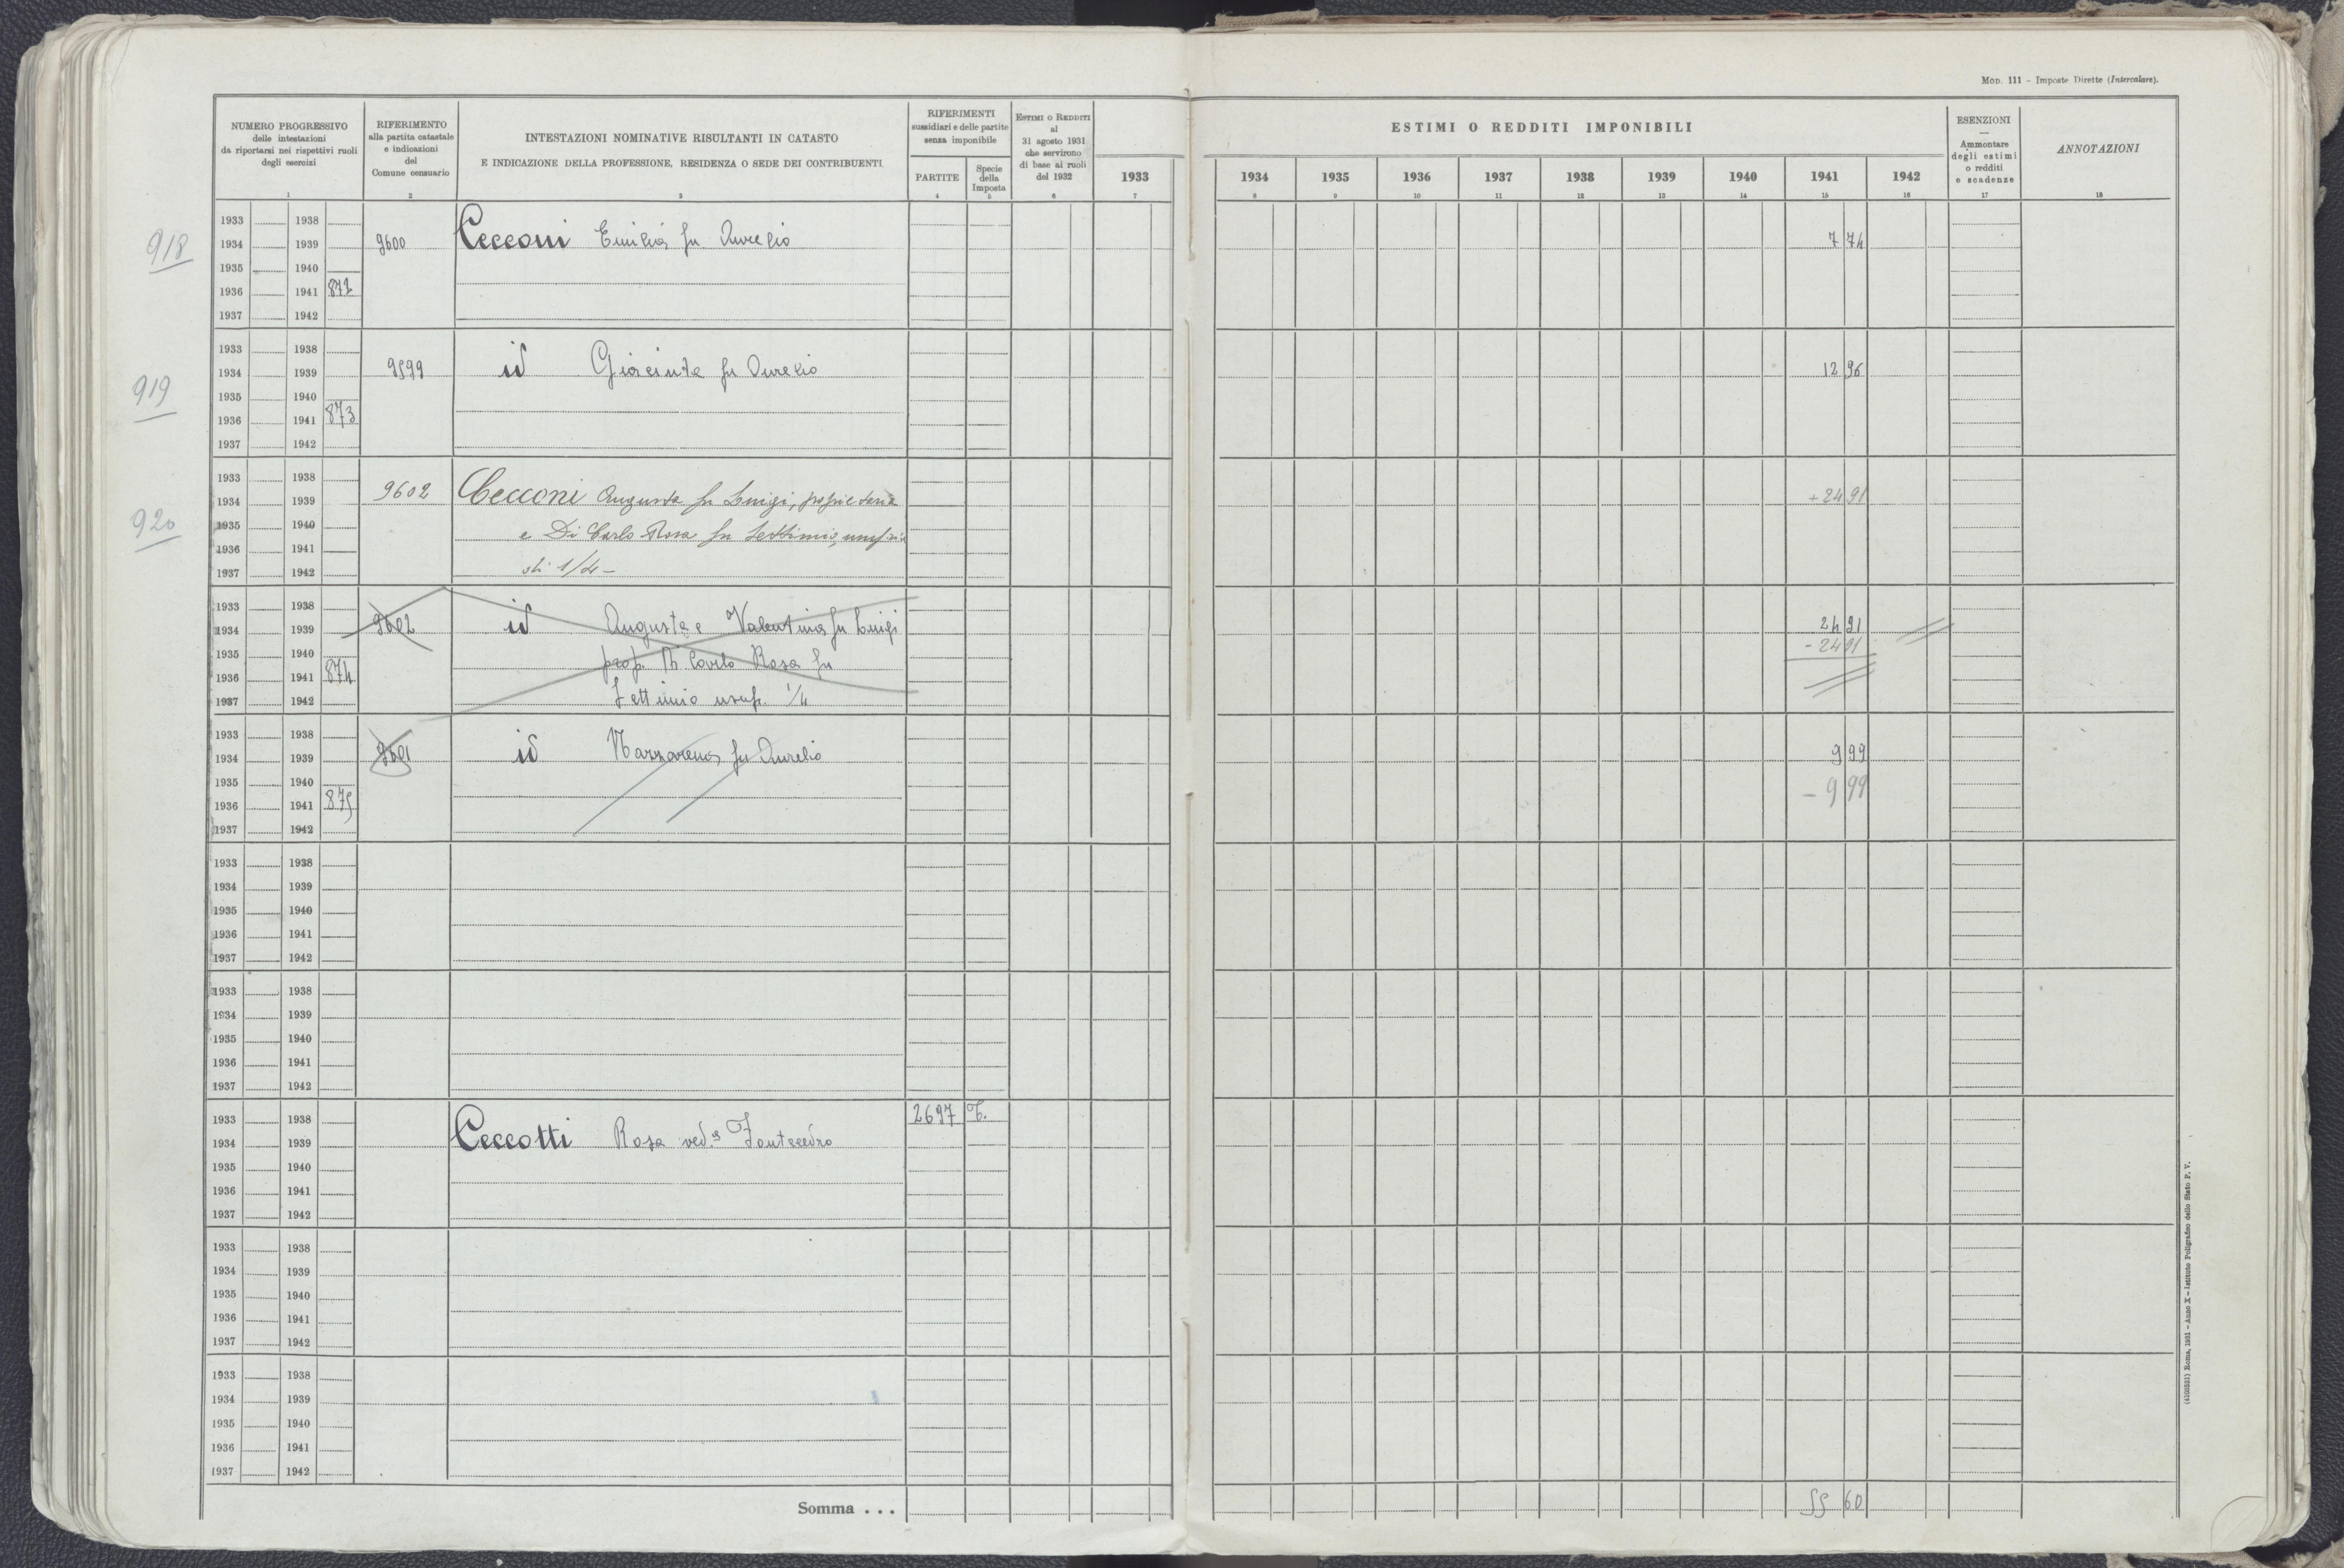 Mod. 111 - Imposte Dirette (Intercalare).
NUMERO PROGRESSIVO
delle intestazioni
da riportarsi nei rispettivi ruoli
degli esercizi
1
RIFERIMENTO
alla partita catastale
e indicazioni
del
Comune censuario
2
INTESTAZIONI NOMINATIVE RISULTANTI IN CATASTO
E INDICAZIONE DELLA PROFESSIONE, RESIDENZA O SEDE DEI CONTRIBUENTI
3
RIFERIMENTI
sussidiari e delle partite
senza imponibile
PARTITE
4
Specie
della
Imposta
5
Estimi o Redditi
al
31 agosto 1931
che servirono
di base ai ruoli
del 1932
6
ESTIMI O REDDITI IMPONIBILI
1933 1934 1935 1936 1937 1938 1939 1940 1941 1942
7 8 9 10 11 12 13 14 15 16
ESENZIONI
—
Ammontare
degli estimi
o redditi
e scadenze
17
ANNOTAZIONI
18
918
1933 1938
1934 1939 9600 Cecconi Emilia fu Aurelio 7 74
1935 1940
1936 1941 872
1937 1942
919
1933 1938
1934 1939 9599 id Giacinta fu Aurelio 12 96
1935 1940
1936 1941 873
1937 1942
920
1933 1938
1934 1939 9602 Cecconi Augusta fu Luigi, proprietaria + 24 91
1935 1940 e Di Carlo Rosa fu Settimio,
1936 1941
1937 1942 di 1/4 -
1933 1938
1934 1939 9602 id Augusta e Valentina fu Luigi 24 91
1935 1940 prop. Di Carlo Rosa fu - 24 91
1936 1941 874
1937 1942 Settimio usuf. 1/4
1933 1938
1934 1939 9601 id Nazzareno fu Aurelio 9 99
1935 1940 - 9 99
1936 1941 875
1937 1942
1933 1938
1934 1939
1935 1940
1936 1941
1937 1942
1933 1938
1934 1939
1935 1940
1936 1941
1937 1942
1933 1938 2697 T.
1934 1939 Ceccotti Rosa ved.a Fontecedro
1935 1940
1936 1941
1937 1942
1933 1938
1934 1939
1935 1940
1936 1941
1937 1942
1933 1938
1934 1939
1935 1940
1936 1941
1937 1942
Somma . . . 55 60
Roma, 1931 - Anno X - Istituto Poligrafico dello Stato P. V.